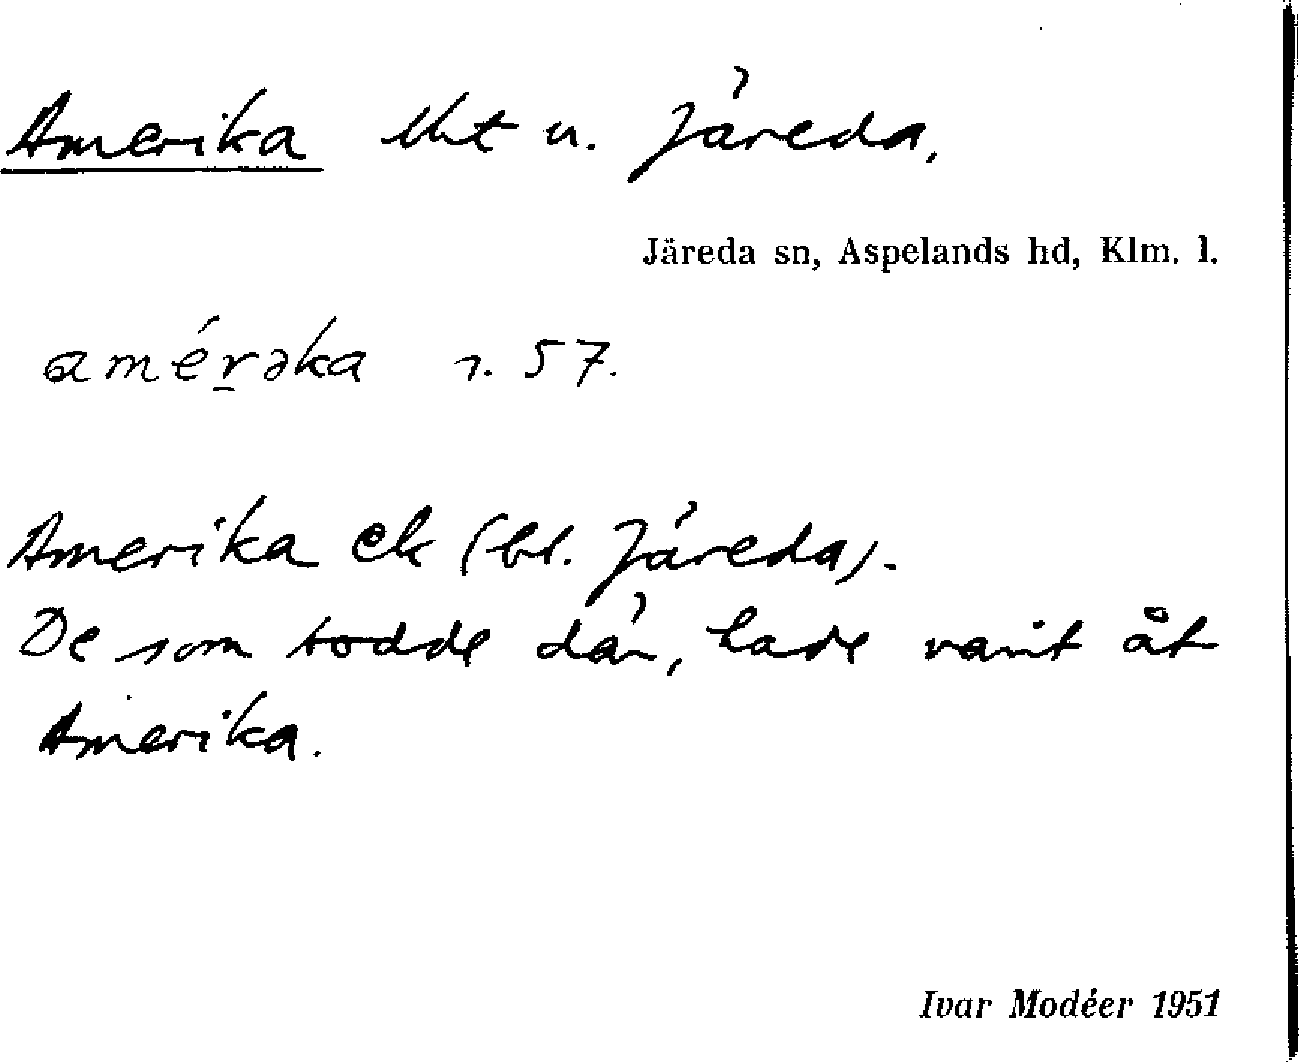 Amerika lht u. Järeda.
Järeda sn, Aspelands hd, Klm. l.
amérəka s. 57.
Amerika ek (bl. Järeda).
De som bodde där, hade varit åt
Amerika.
Ivar Modéer 1951